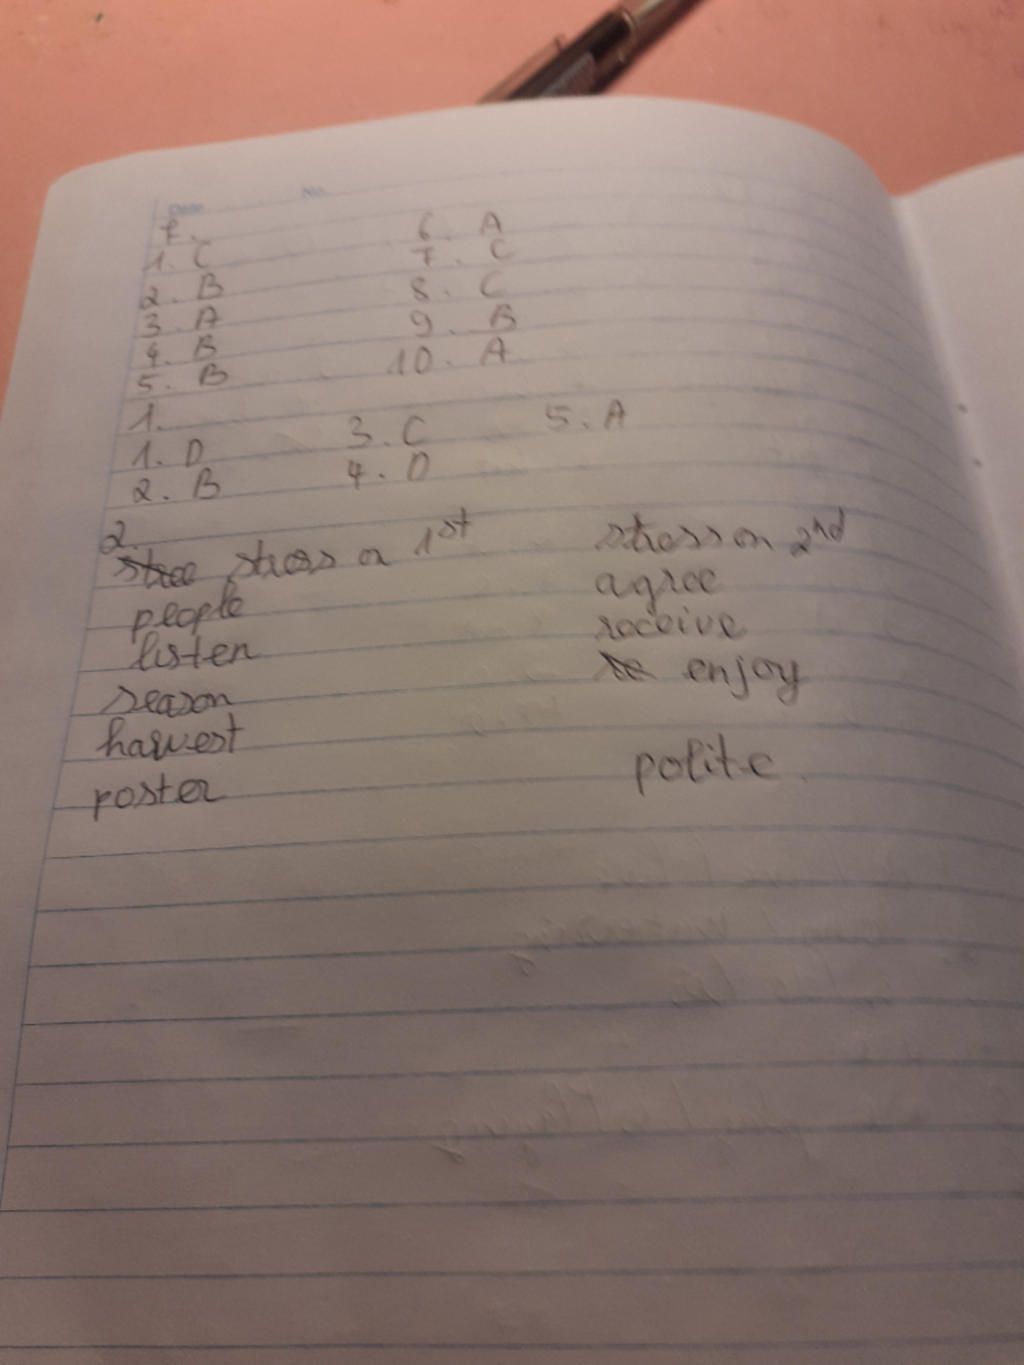 Date No.
7.
1. C 6. A
2. B 7. C
3. A 8. C
4. B 9. B
5. B 10. A
1.
1. D 3. C 5. A
2. B 4. D
2
stree stress on 1st stress on 2nd
people agree
listen receive
reason re enjoy
harvest
poster polite